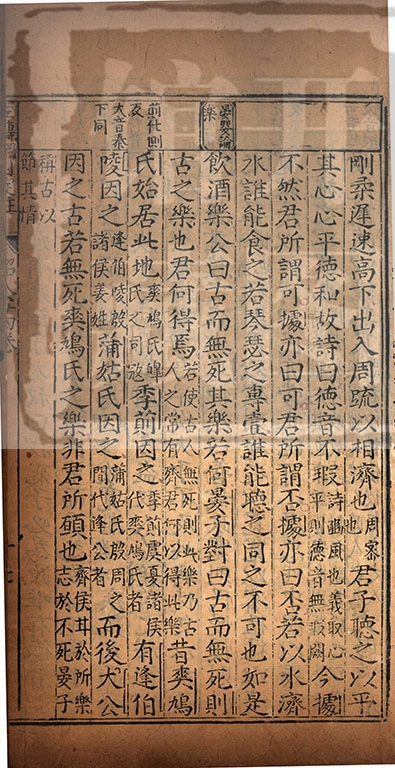 剛柔遲速高下出入周疏以相濟也周密也君子聽之以平
其心心平德和故詩曰德音不瑕詩豳風也義取心平則德音無瑕闕今據
不然君所謂可據亦曰可君所謂否據亦曰否若以水濟
水誰能食之若琴瑟之專壹誰能聽之同之不可也如是
飲酒樂公曰古而無死其樂若何晏子對曰古而無死則
古之樂也君何得焉若使古人無死則此樂乃古人之常有齊君何以得此樂昔爽鳩
氏始居此地爽鳩氏皞氏之司寇季萴因之季萴虞夏諸侯代爽鳩氏者有逢伯
陵因之逢伯陵殷諸侯姜姓蒲姑氏因之蒲姑氏殷周之間代逢公者而後大公
因之古若無死爽鳩氏之樂非君所願也齊侯甘於所樂志於不死晏子
稱古以節其情
晏嬰論樂
萴仕側反
大音泰下同